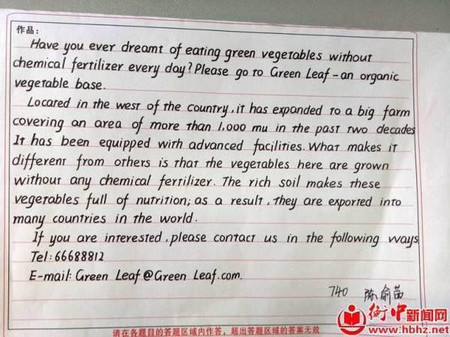 作品:
Have you ever dreamt of eating green vegetables without
chemical fertilizer every day? Please go to Green Leaf-an organic
vegetable base.
Located in the west of the country, it has expanded to a big farm
covering an area of more than 1,000 mu in the past two decades
It has been equipped with advanced facilities. What makes it
different from others is that the vegetables here are grown
without any chemical fertilizer. The rich soil makes these
vegetables full of nutrition; as a result, they are exported into
many countries in the world.
If you are interested, please contact us in the following ways
Tel: 66688812
E-mail: Green Leaf@Green Leaf.com.
740 陈俞苗
请在各题目的答题区域内作答，超出答题区域的答案无效
衡中新闻网
www.hbhz.net